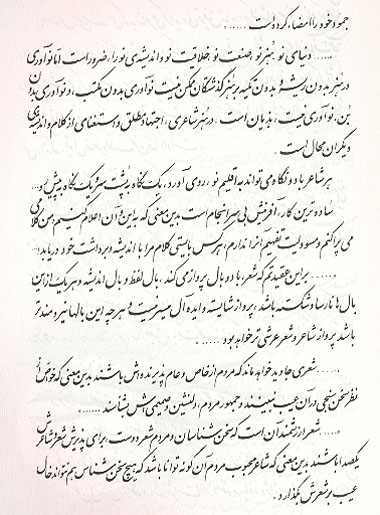 جمود خود را امضاء کرده است ......
...... دنیای نو، هنر نو، صنعت نو، خلاقیت نو و اندیشه‌ی نو را، ضرور است اما نوآوری
در هنر بدون ریشه و بدون تکیه بر هنر گذشتگان ممکن نیست نوآوری بدون مکتب، و نوآوری بدون
بُن، نوآوری نیست، هذیان است. در هنر شاعری، اجتهاد مطلق و استغنای از کلام و اندیشه‌ی
دیگران محال است.
هر شاعر با دو نگاه می‌تواند به اقلیم نو، روی آورد، یک نگاه به پشت سر و یک نگاه به پیش رو ...
ساده‌ترین کار، آفرینش بی سرانجام است بدین معنی که به این و آن اعلام کنیم من کلامی
می‌پراکنم و مسوولیت تفهیم آنرا ندارم، هر کس بایستی کلام مرا با اندیشه و برداشت خود دریابد ...
...... بر این عقیدتم که شعر، با دو بال پرواز می‌کند، بال لفظ و بال اندیشه و هر یک از این
بال‌ها نارسا و شکسته باشد، پرواز شایسته و ایده‌آل میسر نیست و هر چه این بالها نیرومندتر
باشد پرواز شاعر و شعر عرشی‌تر خواهد بود ......
...... شعری جاوید خواهد ماند که مردم از خاص و عام پذیرنده‌اش باشند بدین معنی که خواص از
نظر سخن سنجی در آن عیب نبینند و جمهور مردم، دلنشین و صمیمی‌اش بشناسند ......
...... شعر ارزشمند آن است که سخن شناسان و مردم شعر دوست، برای پذیرش شعر و شاعرش
یکصدا باشند بدین معنی که شاعر محبوب مردم آن گونه توانا باشد که هیچ سخن شناس هم نتواند خال
عیب بر شعرش بگذارد.